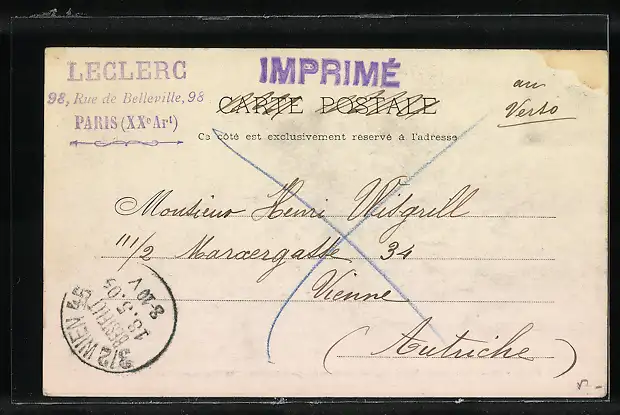 LECLERC
98, Rue de Belleville, 98
PARIS (XXe Art)
IMPRIMÉ
CARTE POSTALE
Ce côté est exclusivement réservé à l'adresse
au
Verso
Monsieur Henri Wisgrill
III/2 Marxergasse 34
Vienne
(Autriche)
3/2 WIEN
BESTELLT
18.5.05
8·20 V